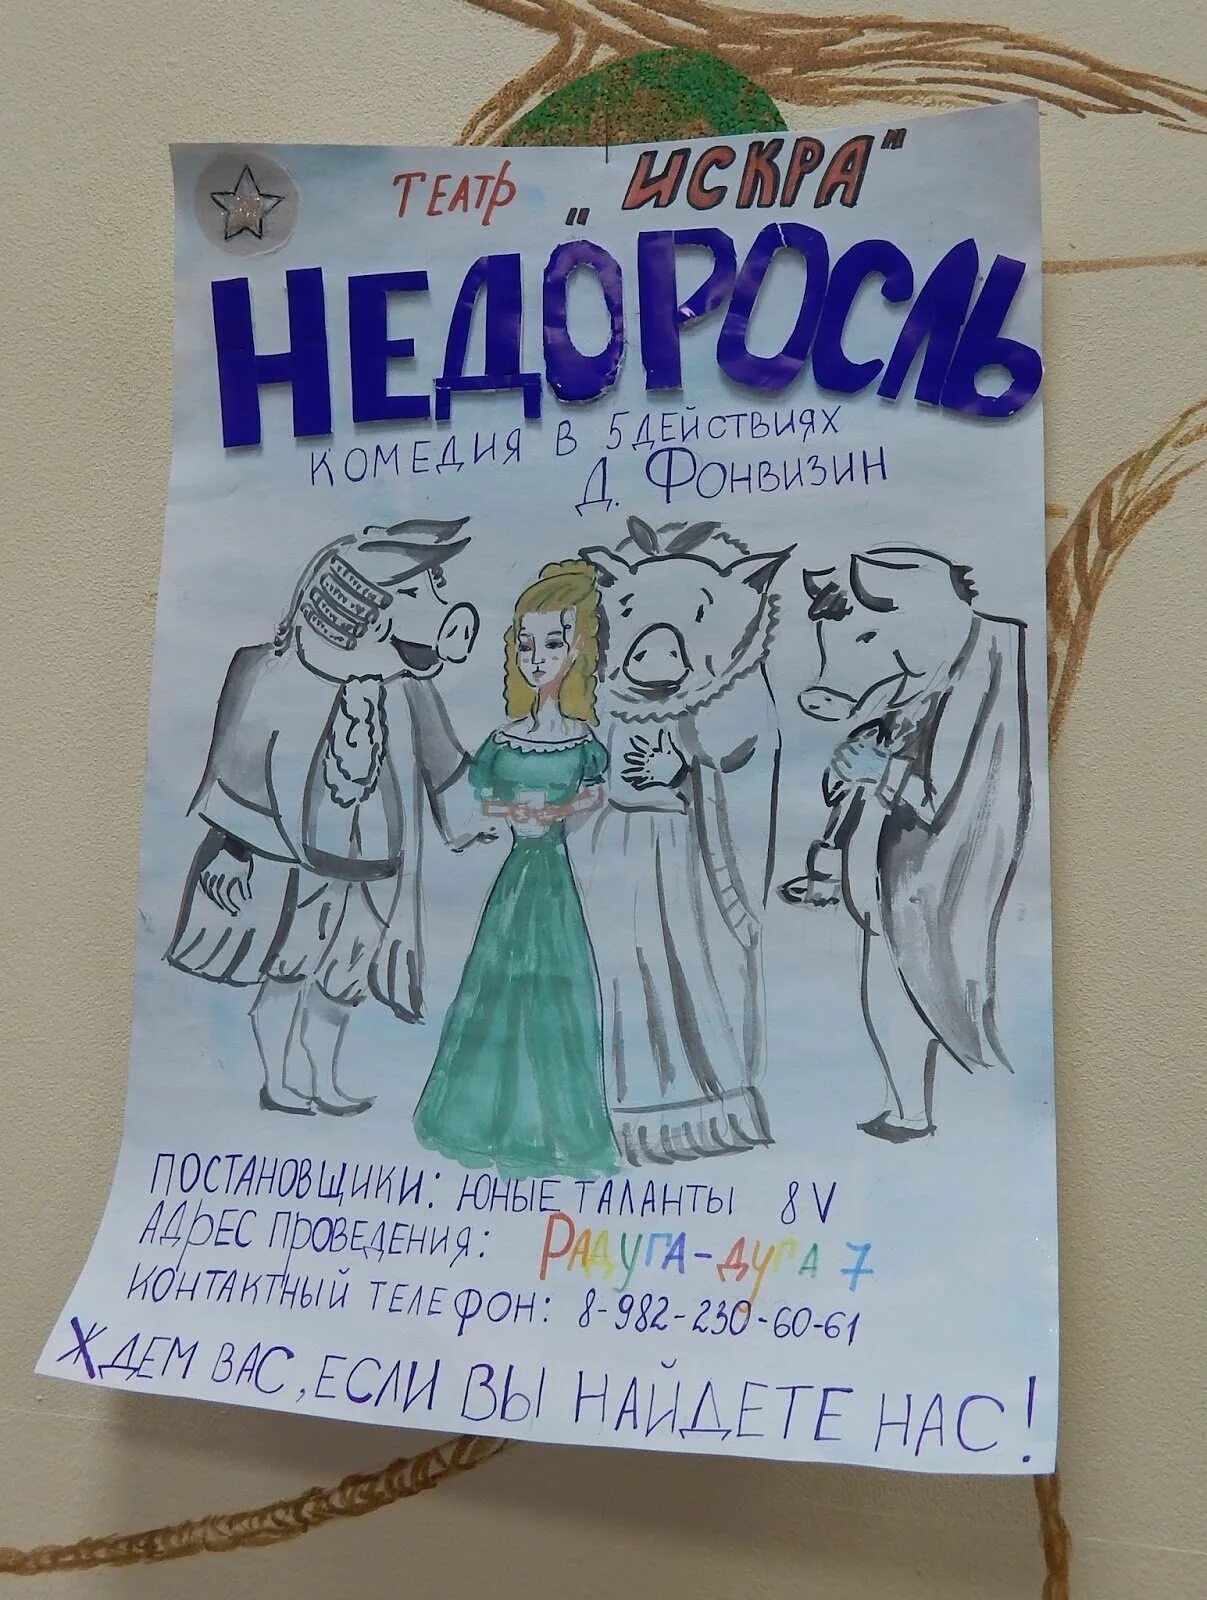 ТЕАТР "ИСКРА"
"НЕДОРОСЛЬ
КОМЕДИЯ В 5 ДЕЙСТВИЯХ
Д. ФОНВИЗИН
ПОСТАНОВЩИКИ: ЮНЫЕ ТАЛАНТЫ 8V
АДРЕС ПРОВЕДЕНИЯ: РАДУГА-ДУГА 7
КОНТАКТНЫЙ ТЕЛЕФОН: 8-982-230-60-61
ЖДЕМ ВАС, ЕСЛИ ВЫ НАЙДЕТЕ НАС!